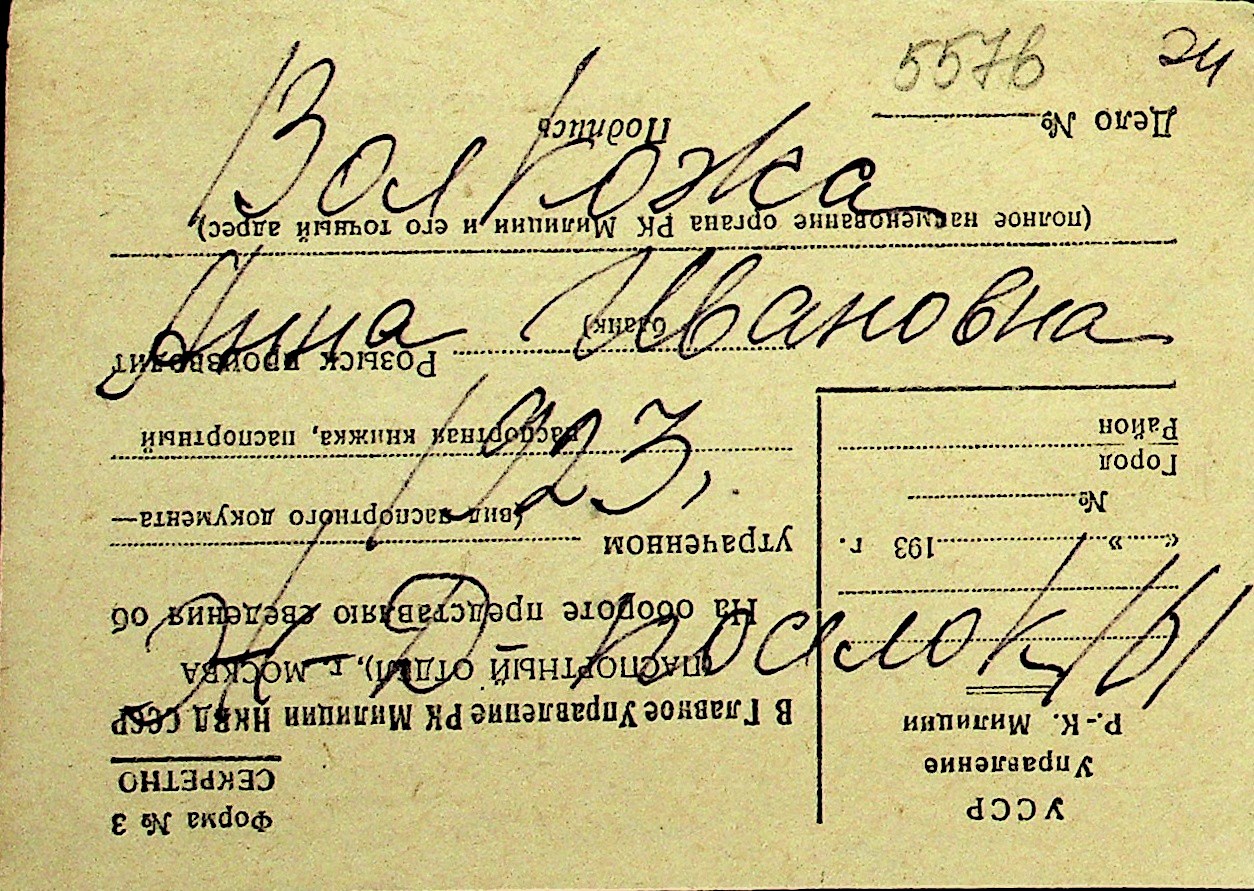 557б
эч
Волкожа
Анна Ивановна
1923,
Ж-Д поселок 1/61
Форма № 3
СЕКРЕТНО
УССР
Управление
Р.-К. Милиции
« » 193 г.
№
Город
Район
В Главное Управление РК Милиции НКВД СССР
(ПАСПОРТНЫЙ ОТДЕЛ), г. МОСКВА
На обороте представляю сведения об
утраченном
(вид паспортного документа—
паспортная книжка, паспортный
бланк)
Розыск производит
(полное наименование органа РК Милиции и его точный адрес)
Дело №
Подпись